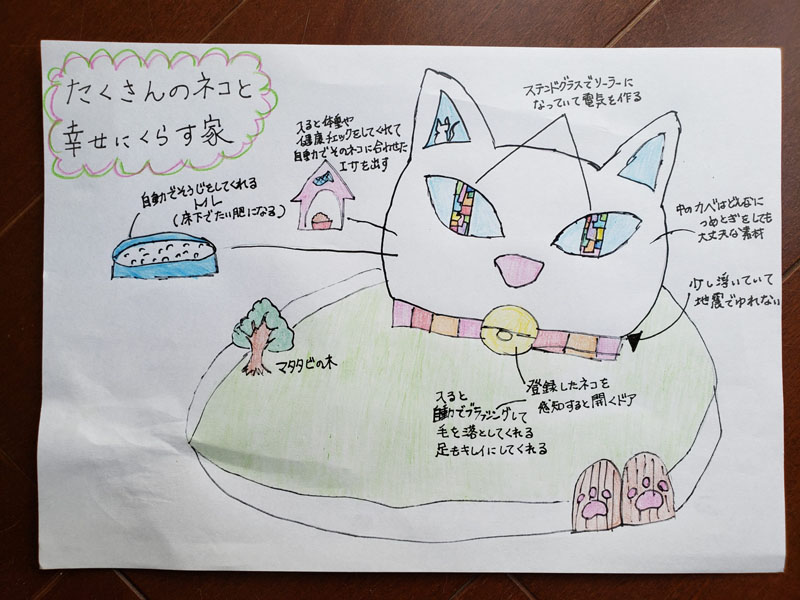 たくさんのネコと
幸せにくらす家
ステンドグラスでソーラーに
なっていて電気を作る
入ると体重や
健康チェックをしてくれて
自動でそのネコに合わせた
エサを出す
自動でそうじをしてくれる
トイレ
(床下でたい肥になる)
中のカベはどんなに
つめとぎをしても
大丈夫な素材
少し浮いていて
地震でゆれない
マタタビの木
登録したネコを
感知すると開くドア
入ると
自動でブラッシングして
毛を落としてくれる
足もキレイにしてくれる